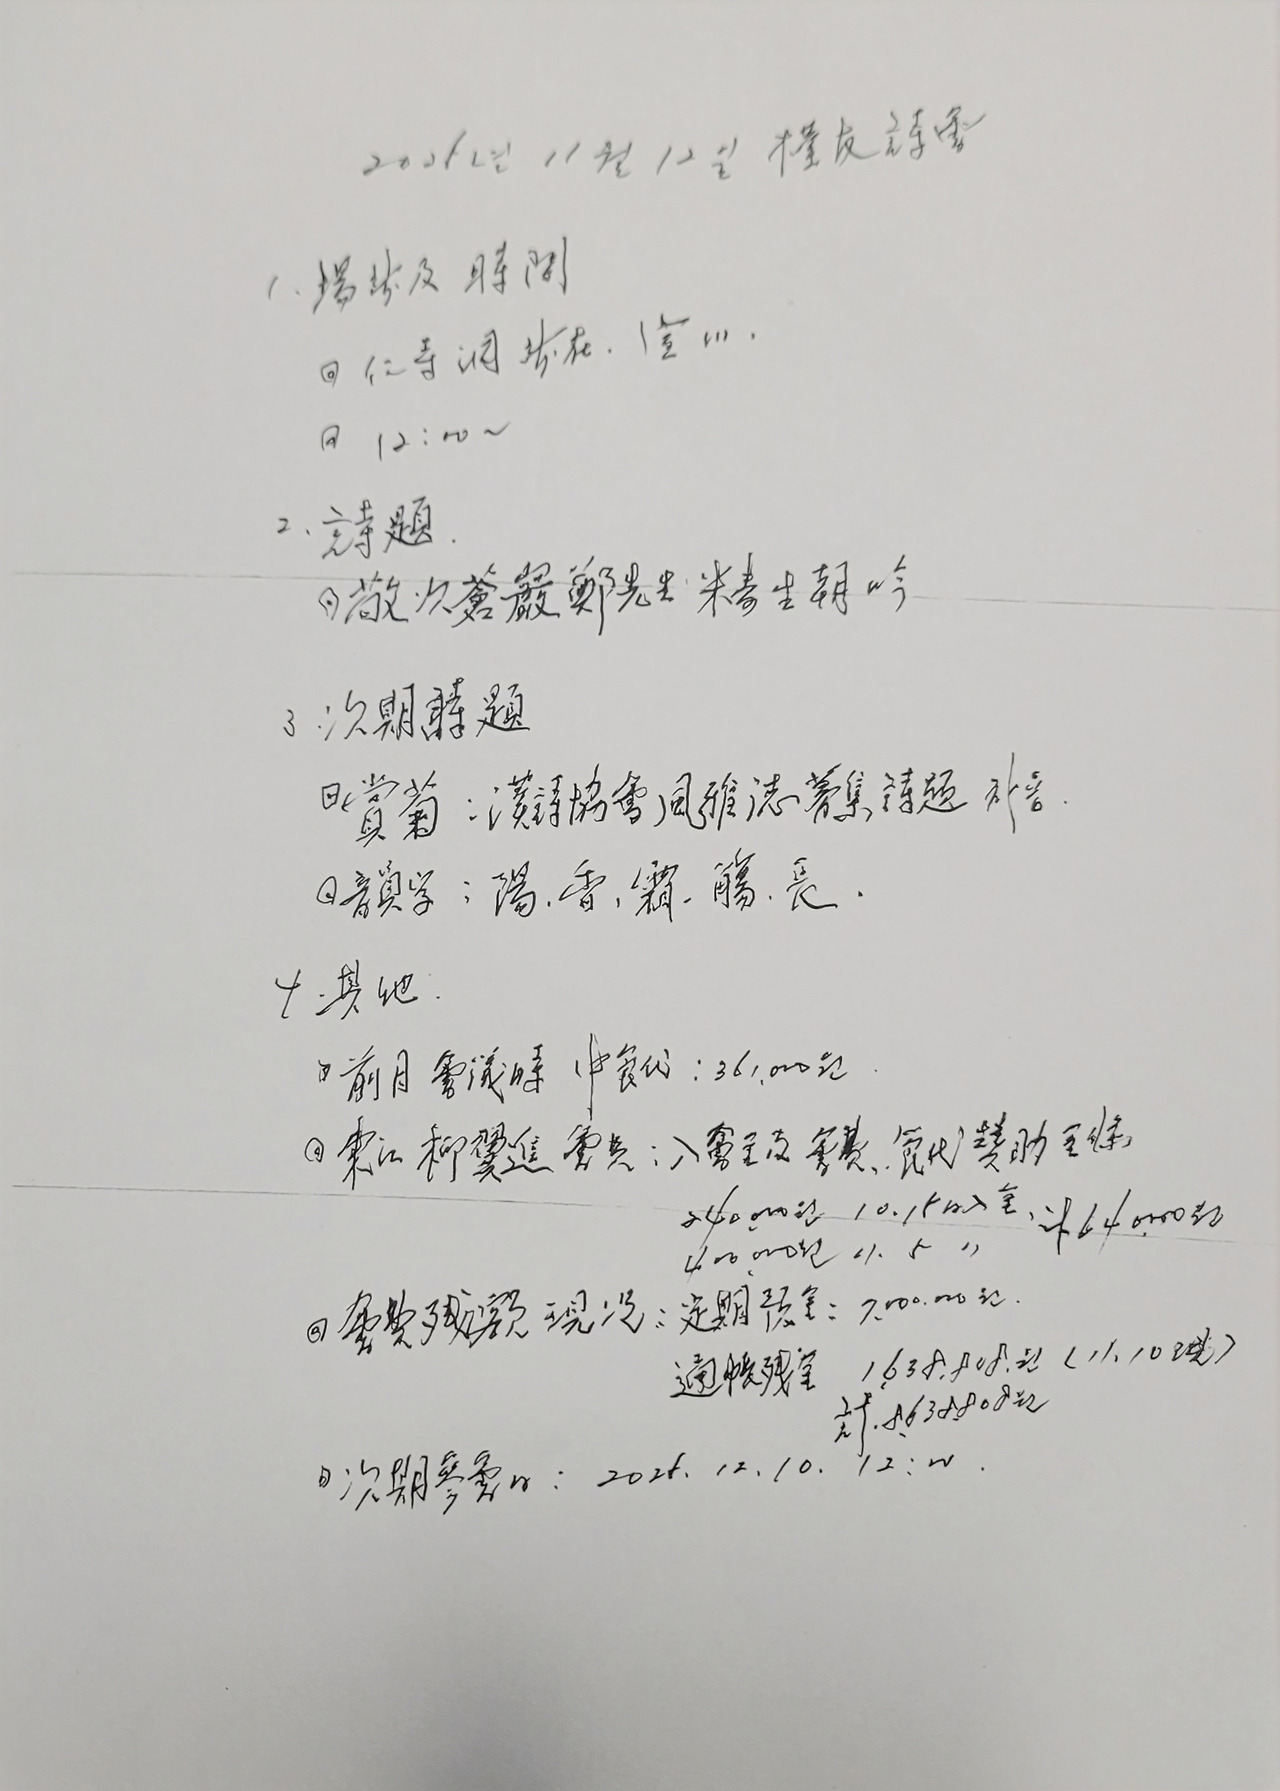 2025년 11월 12일 槿友詩會
1. 場所及 時間
回 仁寺洞 所在.
回 12:00~
2. 詩題.
回 敬次蒼巖鄭先生 米壽生朝吟
3. 次期詩題
回 賞菊 : 漢詩協會風雅誌募集詩題 차용.
回 韻字 ; 陽.香.霜.觴.長.
4. 其他.
回 前月 會議時 中食代 : 361,000원.
回 東江 柳翼進 會員 : 入會金及 會費, 食代 贊助金條
240,000원 10.15日入金, 計640,000원
400,000원 11.5 〃
回 會費残額 現況 : 定期預金 : 7,000,000원.
通帳残金 1,638,808원 (11.10現)
計.8,638,808원
回 次期 會日 : 2025. 12. 10. 12:00.